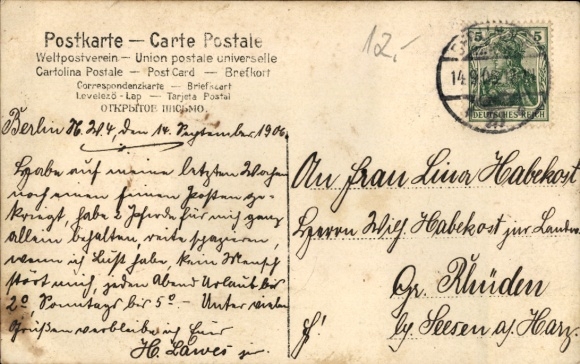 Postkarte — Carte Postale
Weltpostverein — Union postale universelle
Cartolina Postale — Post Card — Brefkort
Correspondenzkarte — Briefkaart
Levelező-Lap — Tarjeta Postal
ОТКРЫТОЕ ПИСЬМО.
12,-
5 5
DEUTSCHES REICH
14.9.06
Berlin N.W 4, den 14. September 1906.
Habe auf meine letzten Wochen
noch einen feinen Posten ge-
kriegt, habe 2 Pferde für mich ganz
allein behalten, reite spazieren,
wenn ich Lust habe, kein Mensch
stört mich, jeden Abend Urlaub bis
2°, Sonntags bis 5° — Unter vielen
Grüßen verbleibe ich Euer
H. Lawes jr.
An Frau Lina Habekost
Herrn Wilh. Habekost zur Landw.
Gr. Rhüden
b/ Seesen a/ Harz.